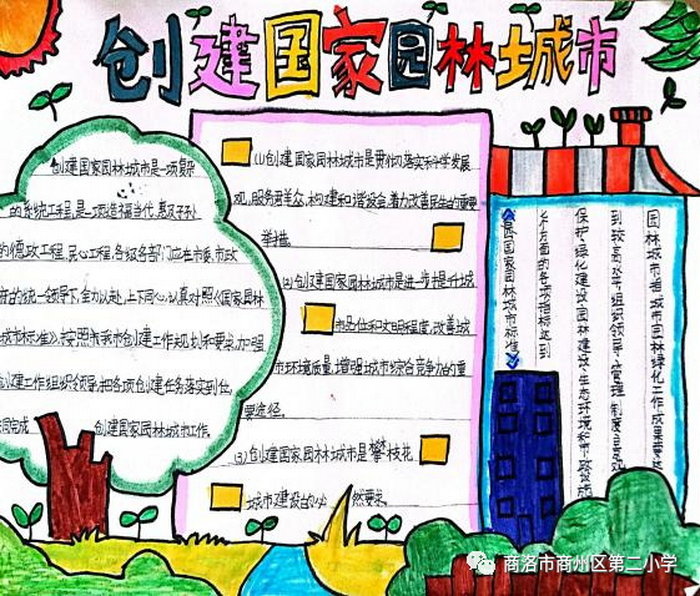 创建国家园林城市
创建国家园林城市是一项复杂
的系统工程,是一项造福当代,惠及子孙
的德政工程,民心工程,各级各部门应在市委、市政
府的统一领导下,全力以赴,上下同心,认真对照《国家园林
城市标准》,按照我市创建工作规划和要求,加强
创建工作组织领导,把各项创建任务落实到位,
共同完成 创建国家园林城市工作。
(1)创建国家园林城市是贯彻落实科学发展
观,服务群众,构建和谐社会,着力改善民生的重要
举措.
(2)创建国家园林城市是进一步提升城
市品位和文明程度,改善城
市环境质量,增强城市综合竞争力的重
要途径.
(3)创建国家园林城市是攀枝花
城市建设的必然要求.
园林城市指城市园林绿化工作成果要达
到较高水平,组织领导、管理制度、
保护、绿化建设、园林建设、生态环境和市政设施
个方面的各项指标达到
国家园林城市标准
商洛市商州区第二小学